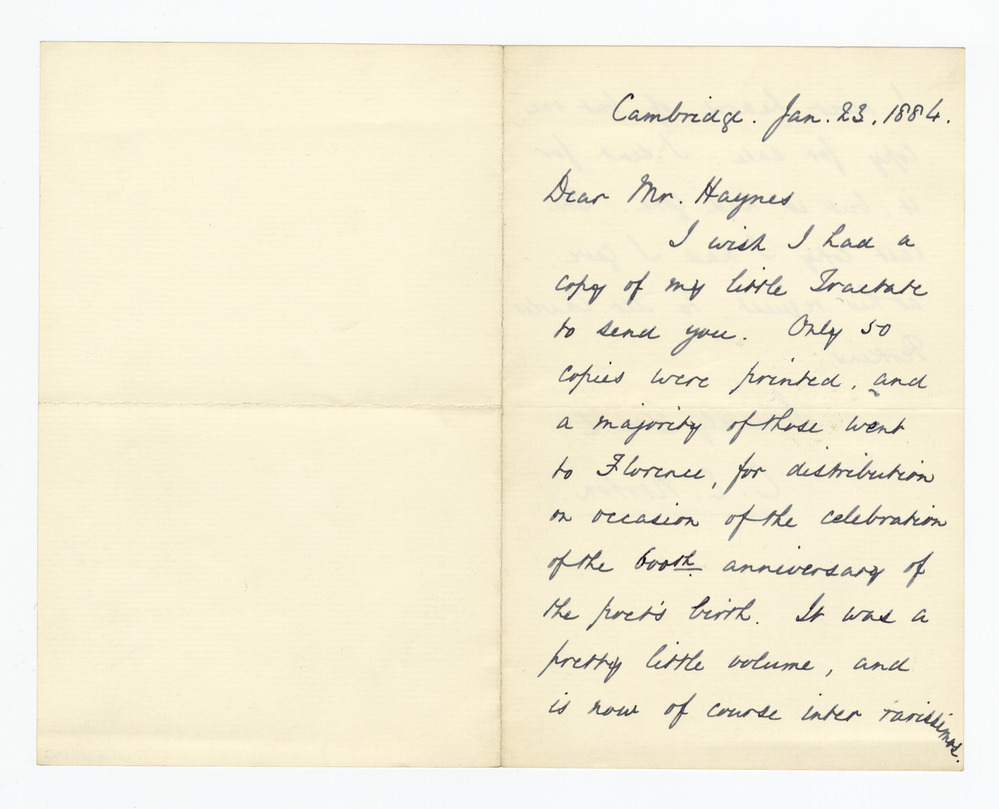 Cambridge. Jan. 23, 1884.
Dear Mr. Haynes
I wish I had a
copy of my little Tractate
to send you. Only 50
copies were printed, and
a majority of those went
to Florence, for distribution
on occasion of the celebration
of the 600th anniversary of
the poet's birth. It was a
pretty little volume, and
is now of course inter rarissimos.